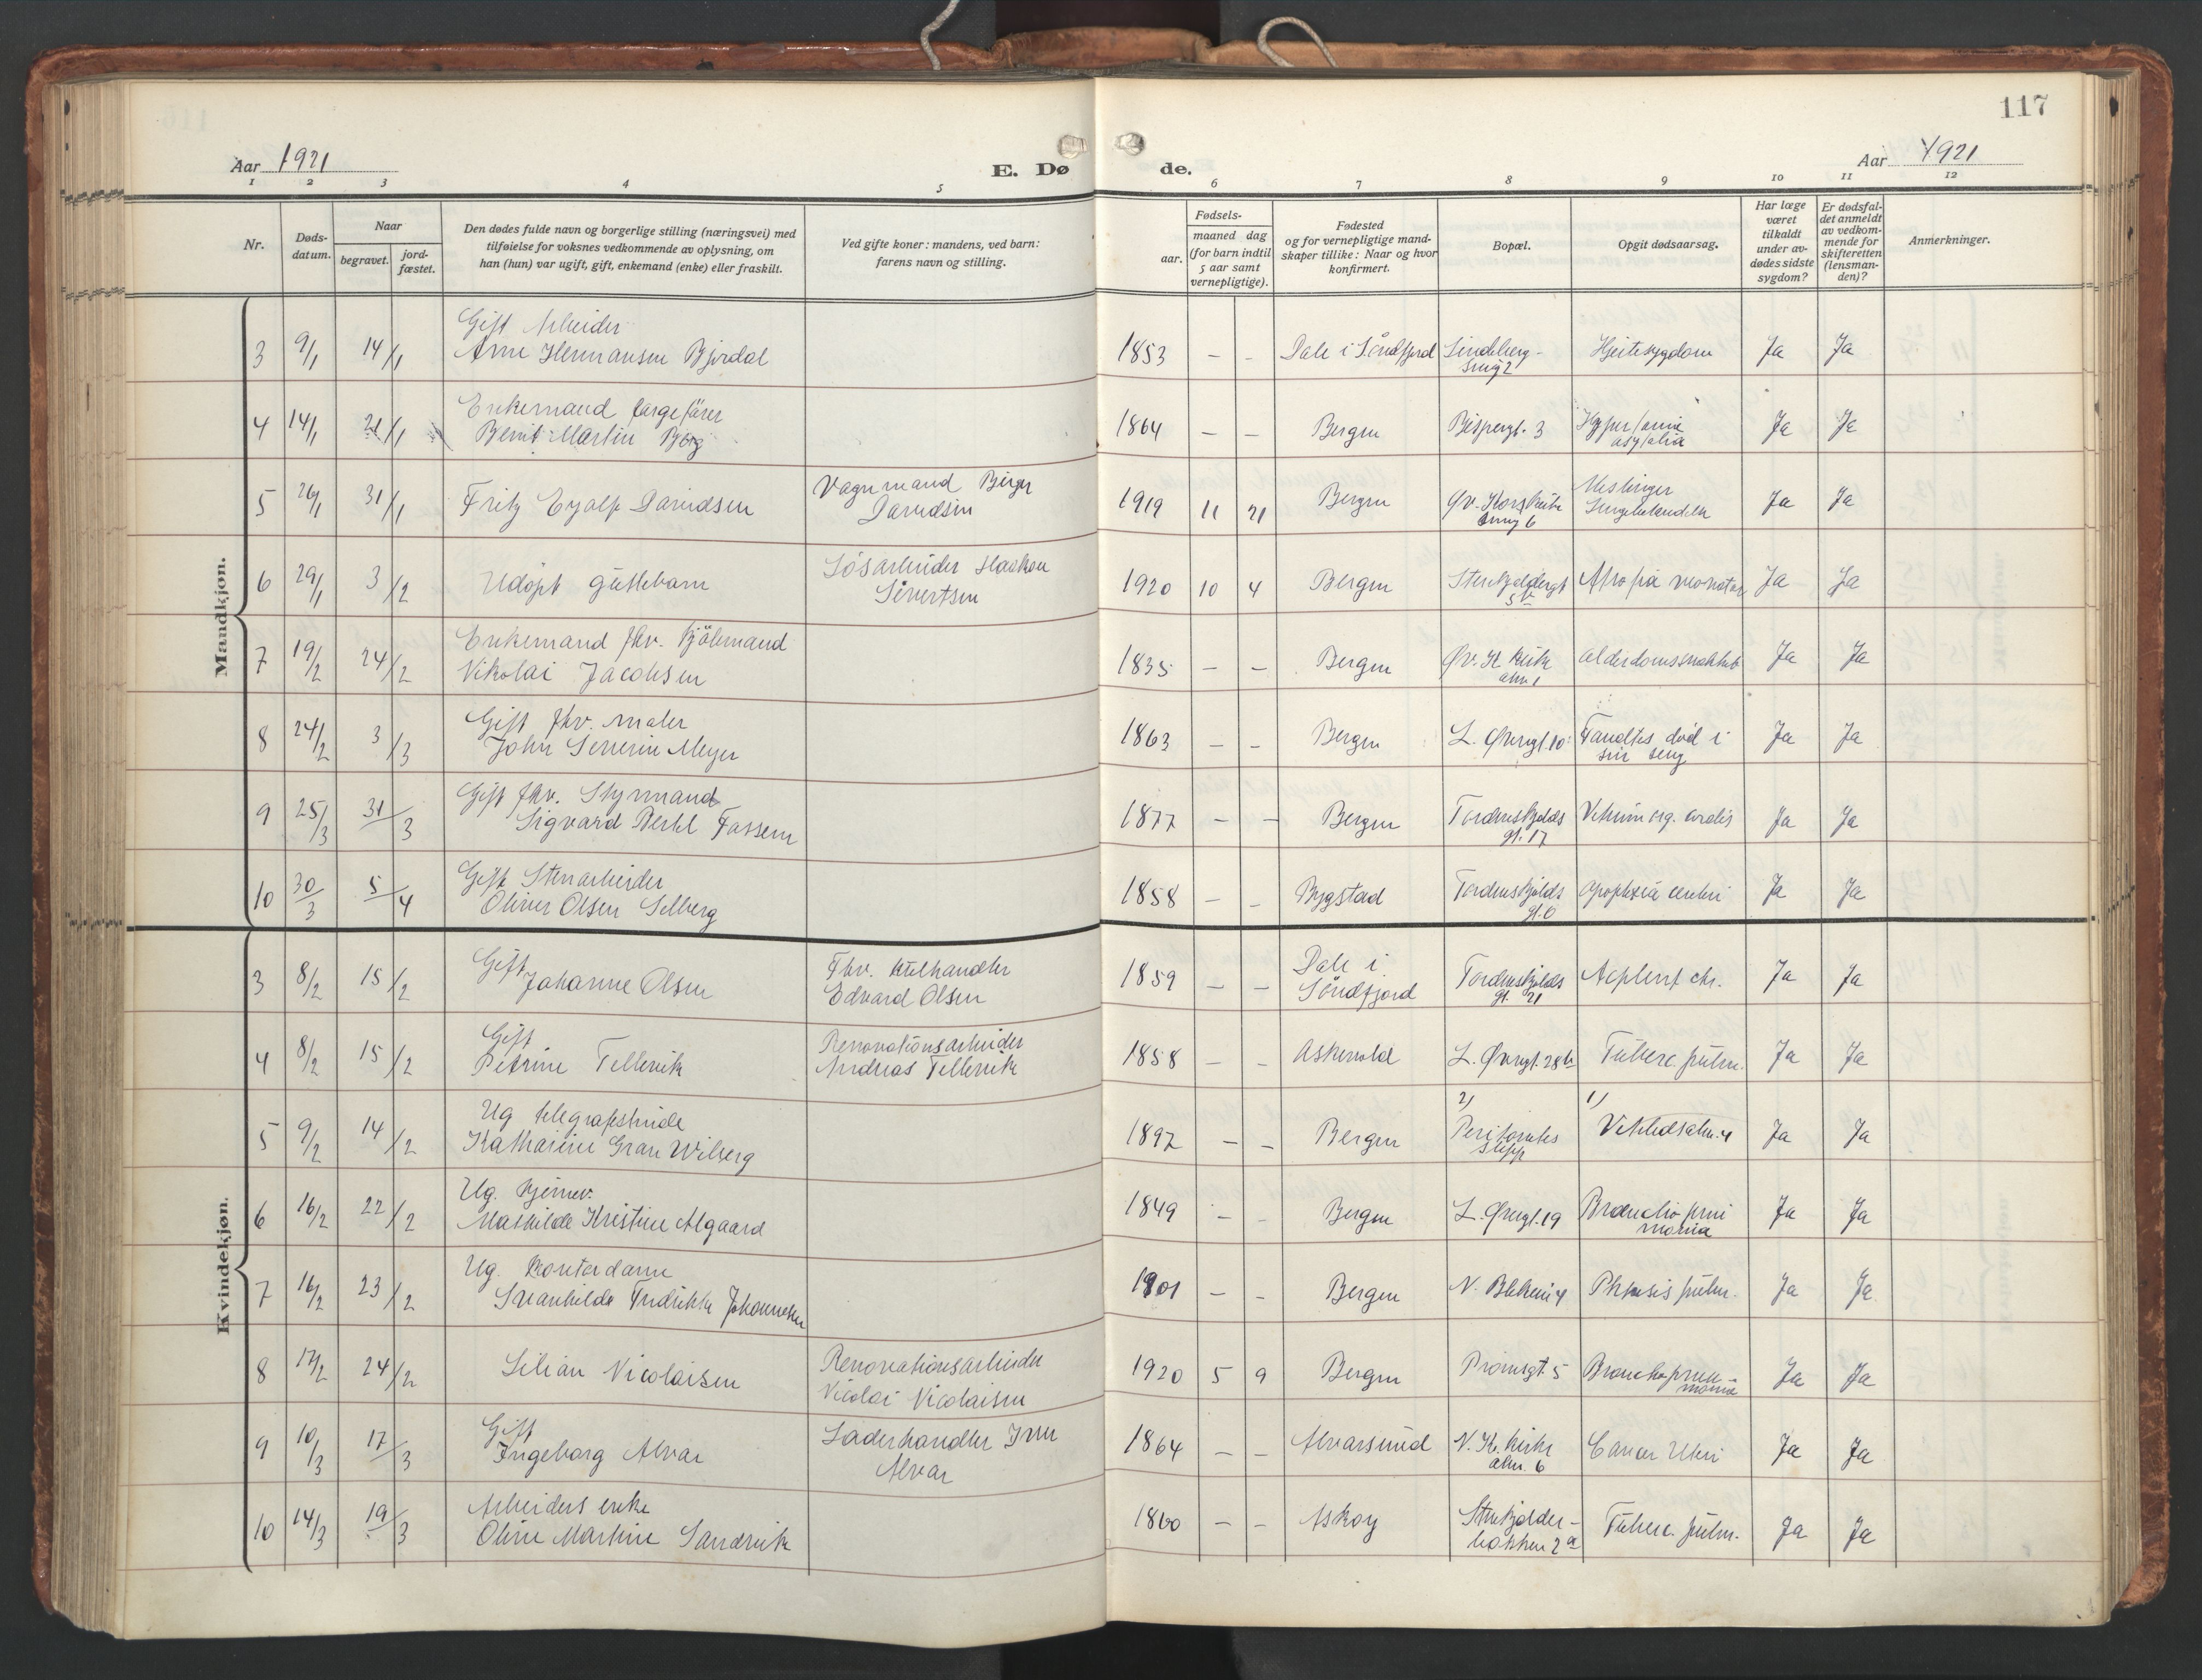 117
Aar 1921
E. Dø
de.
Aar 1921
1 2 3 4 5 6 7 8 9 10 11 12
Nr.
Døds-
datum.
Naar
begravet.
jord-
fæstet.
Den dødes fulde navn og borgerlige stilling (næringsvei) med
tilføielse for voksnes vedkommende av oplysning, om
han (hun) var ugift, gift, enkemand (enke) eller fraskilt.
Ved gifte koner: mandens, ved barn:
farens navn og stilling.
Fødsels-
aar.
maaned dag
(for barn indtil
5 aar samt
vernepligtige).
Fødested
og for vernepligtige mand-
skaper tillike: Naar og hvor
konfirmert.
Bopæl.
Opgit dødsaarsag.
Har læge
været
tilkaldt
under av-
dødes sidste
sygdom?
Er dødsfal-
det anmeldt
av vedkom-
mende for
skifteretten
(lensman-
den)?
Anmerkninger.
Mandkjøn.
Gift Arbeider
3 9/1 14/1 Arne Hermansen Bjordal 1853 – – Dale i Söndfjord Lindeberg-
smug 2 Hjertesygdom Ja Ja
Enkemand færgefører
4 14/1 21/1 Bernt Martin 1864 – – Bergen Bispengt. 3 Ja Ja
5 26/1 31/1 Fritz Eyolf Davidsen Vognmand Birger
Davidsen 1919 11 21 Bergen Øv. Korskirke
smug 6 Meslinger
Ja Ja
6 29/1 3/2 Udöpt guttebarn Løsarbeider Haakon
Sivertsen 1920 10 4 Bergen Stenkjeldergt
5 b Ja Ja
Enkemand fhv. Kjöbmand
7 19/2 24/2 Nikolai Jacobsen 1835 – – Bergen Øv. K kirke
alm 1 Alderdomssvakhet Ja Ja
Gift fhv. maler
8 24/2 3/3 John Severin Meyer 1863 – – Bergen L. Øvregt. 10 Fandtes död i
sin seng Ja Ja
Gift fhv. Styrmand
9 25/3 31/3 Sigvard Bertel Fassem 1877 – – Bergen Tordenskjolds
gt. 17 Vitium org. cordis Ja Ja
Gift Stenarbeider
10 30/3 5/4 Oliver Olsen Selberg 1858 – – Bygstad Tordenskjolds
gt. 6 Apoplexia cerebri Ja Ja
Kvindekjøn.
Gift
3 8/2 15/2 Johanne Olsen Fhv. kulhandler
Edvard Olsen 1859 – – Dale i
Söndfjord Tordenskjolds
gt. 21 chr. Ja Ja
Gift
4 8/2 15/2 Petrine Tellevik Renovationsarbeider
Andreas Tellevik 1858 – – Askevold L. Øvregt. 28 b Tuberc. pulm. Ja Ja
Ug telegrafistinde
5 9/2 14/2 Katharine Gran Wiberg 1897 – – Bergen 2) Peritonitis
1) Ja Ja
Ug.
6 16/2 22/2 Mathilde Kristine Algaard 1849 – – Bergen L. Øvregt. 19 Bronchopneu
monia Ja Ja
Ug. Kontordame
7 16/2 23/2 Svanhilde Fredrikke Johannesen 1901 – – Bergen N. Blekevei 4 Phtisis pulm. Ja Ja
8 17/2 24/2 Lilian Nicolaisen Renovationsarbeider
Nicolai Nicolaisen 1920 5 9 Bergen Prömsgt. 5 Bronchopneu-
monia Ja Ja
Gift
9 10/3 17/3 Ingeborg Alvar Læderhandler Iver
Alvar 1864 – – Alvarsund N. K. kirke
alm. 6 Cancer Uteri Ja Ja
Arbeiders enke
10 14/3 19/3 Oline Martine Sandvik 1860 – – Askøy Stenkjelder-
bakken 2 a Tuberc. pulm. Ja Ja